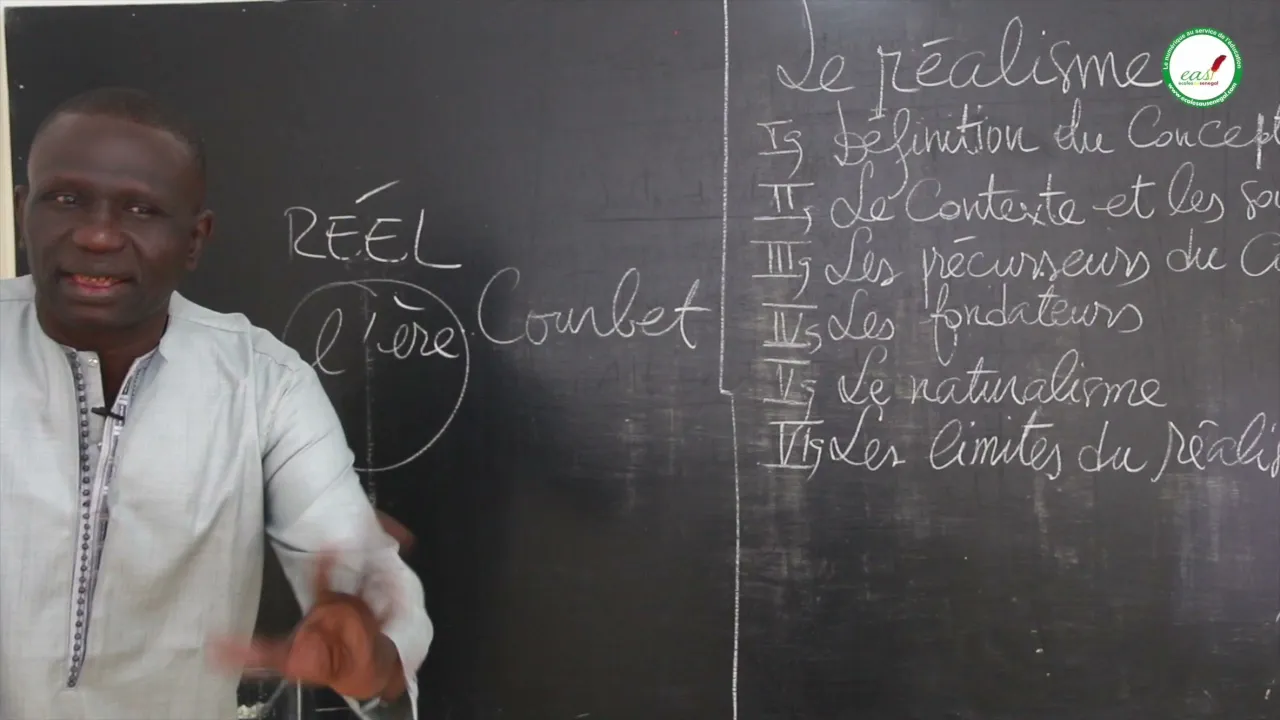 RÉEL
l'ère
Courbet
Le réalisme
I Définition du Concept
II Le Contexte et les
III Les précurseurs du
IV Les fondateurs
V Le naturalisme
VI Les limites du
Le numérique au service de l'éducation
eas
ecolesausenegal
www.ecolesausenegal.com